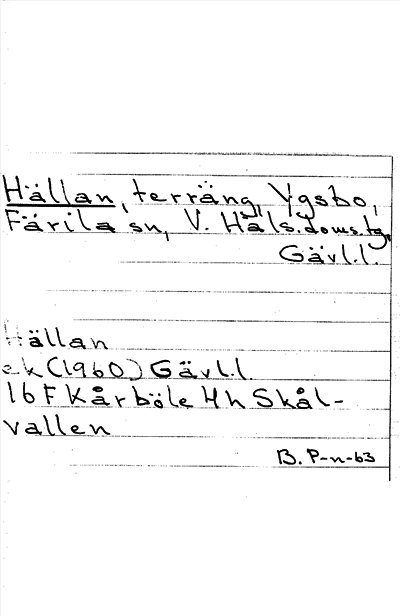 Hällan, terräng, Ygsbo,
Färila sn, V. Häls. doms. tg,
Gävl.l.
Hällan
ek (1960) Gävl.l
16 F Kårböle 4h Skål-
vallen
B. P-n-63